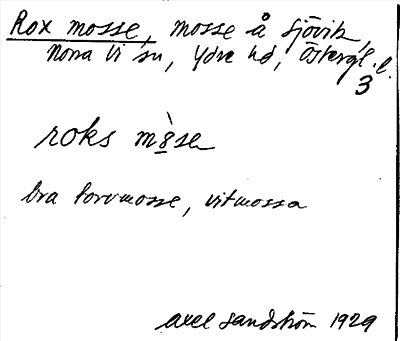 Rox mosse, mosse å Sjövik,
Norra Vi sn, Ydre hd, Östergl. l.
3
roks mòse
bra torvmosse, vitmossa
Axel Sandström 1929